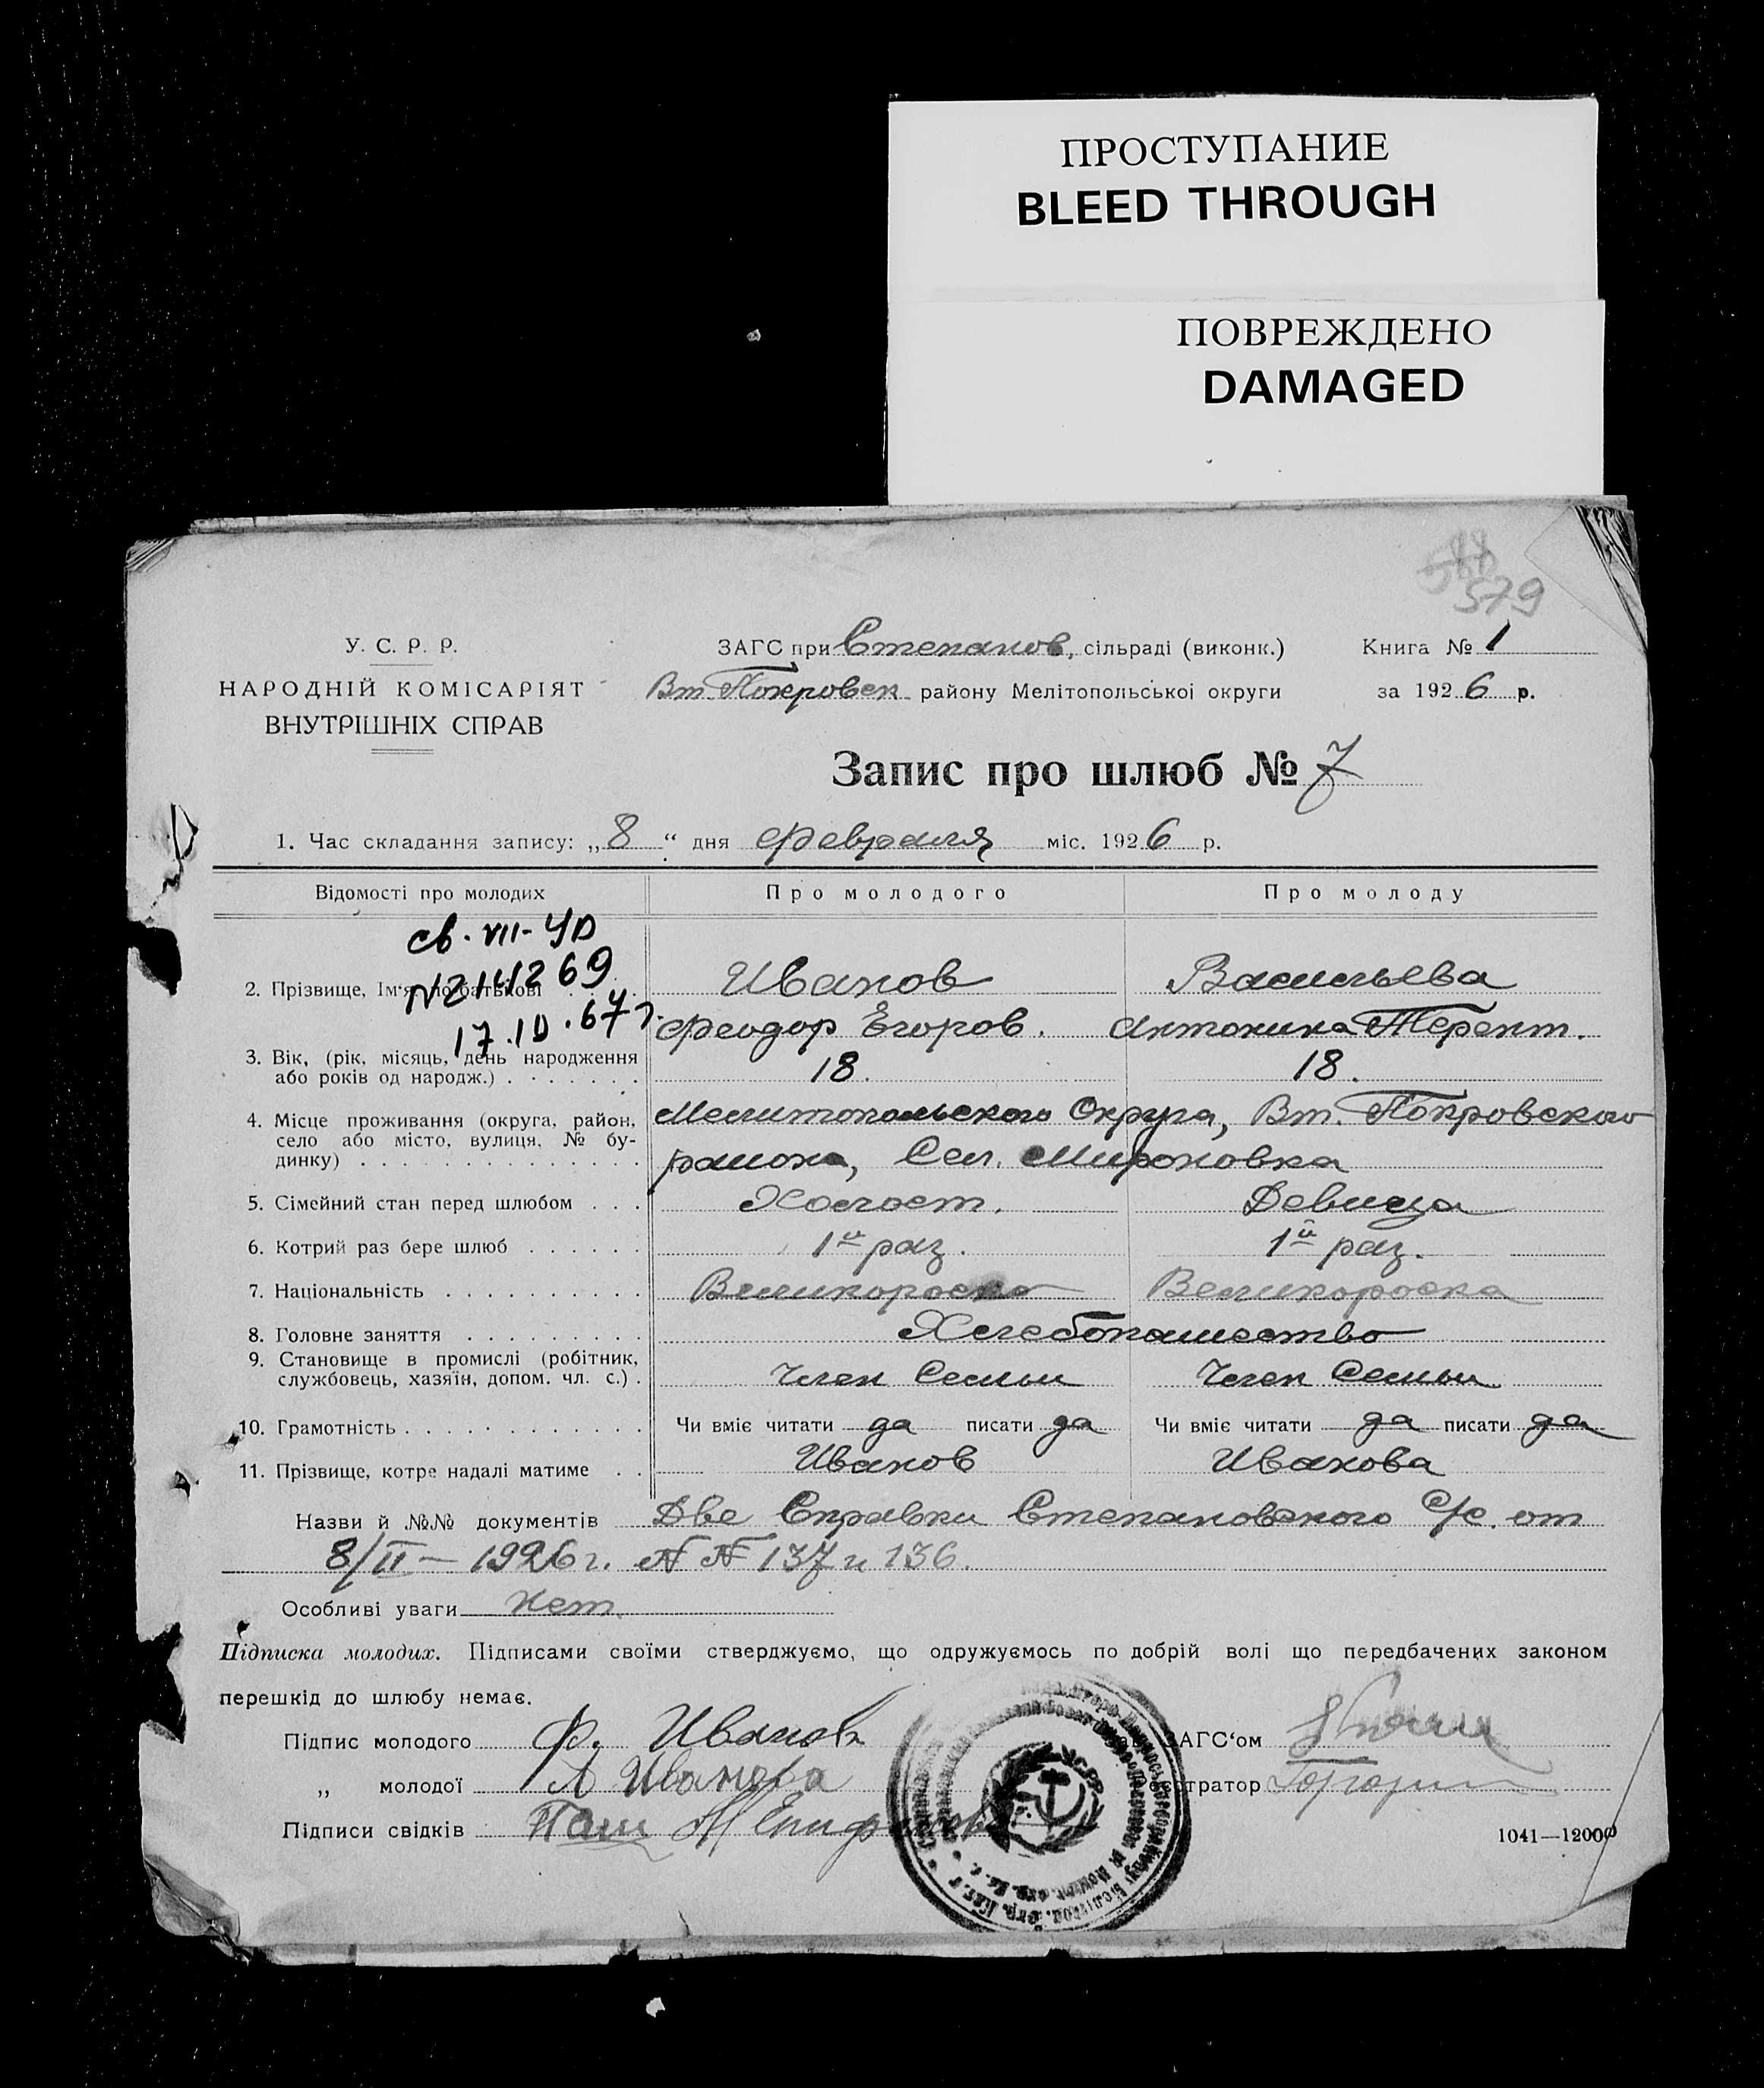 ПРОСТУПАНИЕ
BLEED THROUGH
ПОВРЕЖДЕНО
DAMAGED
579
У. С. Р. Р.
НАРОДНІЙ КОМІСАРІЯТ
ВНУТРІШНІХ СПРАВ
ЗАГС при Степанов, сільраді (виконк.)
Вт. Покровск району Мелітопольської округи
Книга № 1
за 1926 р.
Запис про шлюб № 7
1. Час складання запису: „8“ дня февраля міс. 1926 р.
Відомості про молодих Про молодого Про молоду
св. VII-УД
№ 214269
17.10.67 г.
2. Прізвище, Ім'я, по батькові Иванов Васильева
Феодор Егоров. Антонина Терент.
3. Вік, (рік, місяць, день народження
або років од народж.) 18. 18.
4. Місце проживання (округа, район,
село або місто, вулиця, № бу-
динку)
Мелитопольского Округа, Вт. Покровского
района, Сел. Мироновка
5. Сімейний стан перед шлюбом Холост. Девица
6. Котрий раз бере шлюб 1й раз. 1й раз.
7. Національність Великоросс Великороска
8. Головне заняття Хлебопашество
9. Становище в промислі (робітник,
службовець, хазяїн, допом. чл. с.) Член Семьи Член Семьи
10. Грамотність Чи вміє читати да писати да Чи вміє читати да писати да
11. Прізвище, котре надалі матиме Иванов Иванова
Назви й №№ документів Две Справки Степановского С/с. от
8/II — 1926 г. № № 137 и 136.
Особливі уваги Нет.
Підписка молодих. Підписами своїми стверджуємо, що одружуємось по добрій волі що передбачених законом
перешкід до шлюбу немає.
Підпис молодого Ф. Иванов
„ молодої А Иванова
Підписи свідків
ЗАГС'ом
1041—12000
УСРР